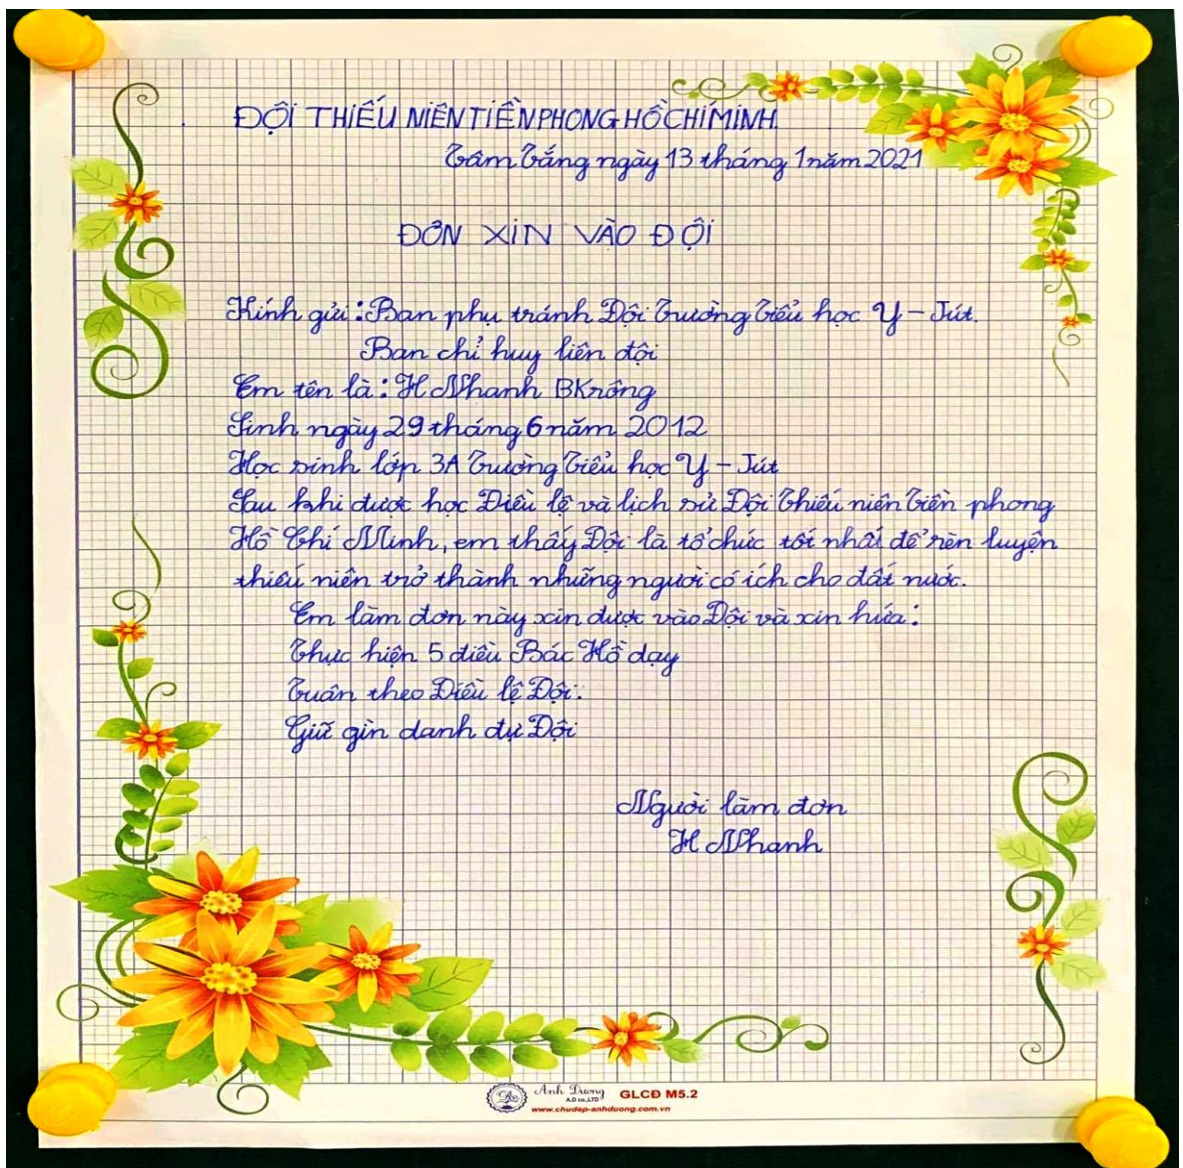 ĐỘI THIẾU NIÊN TIỀN PHONG HỒ CHÍ MINH
Tâm Tắng ngày 13 tháng 1 năm 2021
ĐƠN XIN VÀO ĐỘI
Kính gửi: Ban phụ tránh Đội Trường Tiểu học Y - Jút.
Ban chỉ huy liên đội
Em tên là: H Nhanh BKrông
Sinh ngày 29 tháng 6 năm 2012
Học sinh lớp 3A Trường Tiểu học Y - Jút
Sau khi được học Điều lệ và lịch sử Đội Thiếu niên Tiền phong
Hồ Chí Minh, em thấy Đội là tổ chức tốt nhất để rèn luyện
thiếu niên trở thành những người có ích cho đất nước.
Em làm đơn này xin được vào Đội và xin hứa:
Thực hiện 5 điều Bác Hồ dạy
Tuân theo Điều lệ Đội.
Giữ gìn danh dự Đội
Người làm đơn
H Nhanh
Anh Dương GLCĐ M5.2
A.D co.,LTD
www.chudep-anhduong.com.vn